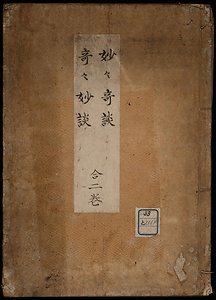 妙々奇談
奇々妙談
合二巻